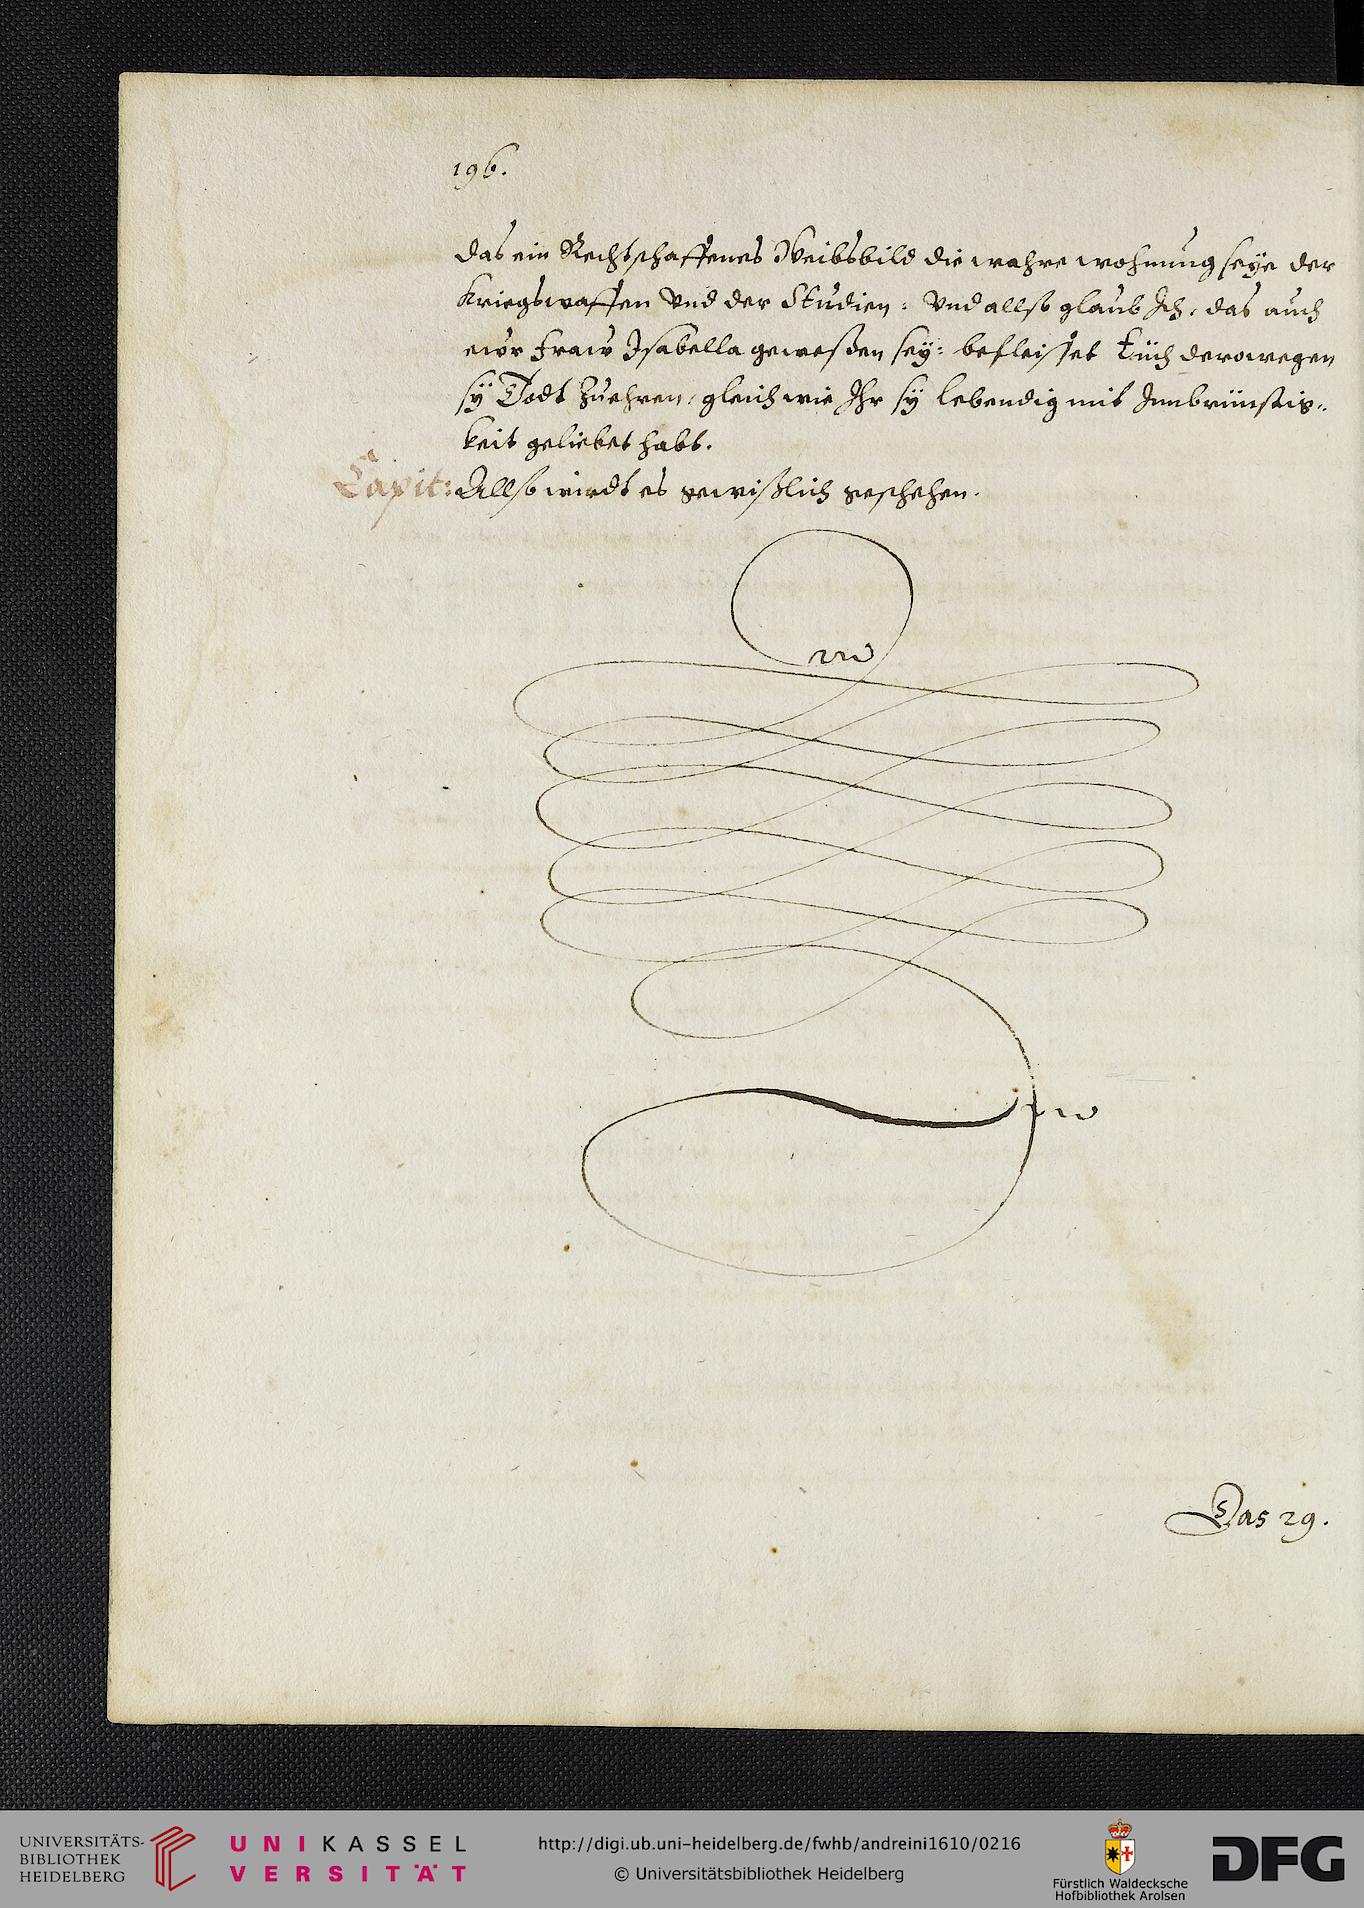 196.
das ein Rechtschaffenes Weibsbild die wahre wohnung seye der
Kriegswaffen Vnd der Studien: Vnd allso glaub Ich, das auch
ewr Fraw Isabella gewesen sey: befleisset Euch derowegen
sy Todt Zuehren, gleich wie Ihr sy lebendig mit Innbrünstig-
keit geliebet habt.
Capit: Allso wirdt es gewißlich geschehen.
Das 29.
UNIVERSITÄTS-
BIBLIOTHEK
HEIDELBERG
UNIKASSEL
VERSITÄT
http://digi.ub.uni-heidelberg.de/fwhb/andreini1610/0216
© Universitätsbibliothek Heidelberg
Fürstlich Waldecksche
Hofbibliothek Arolsen
DFG